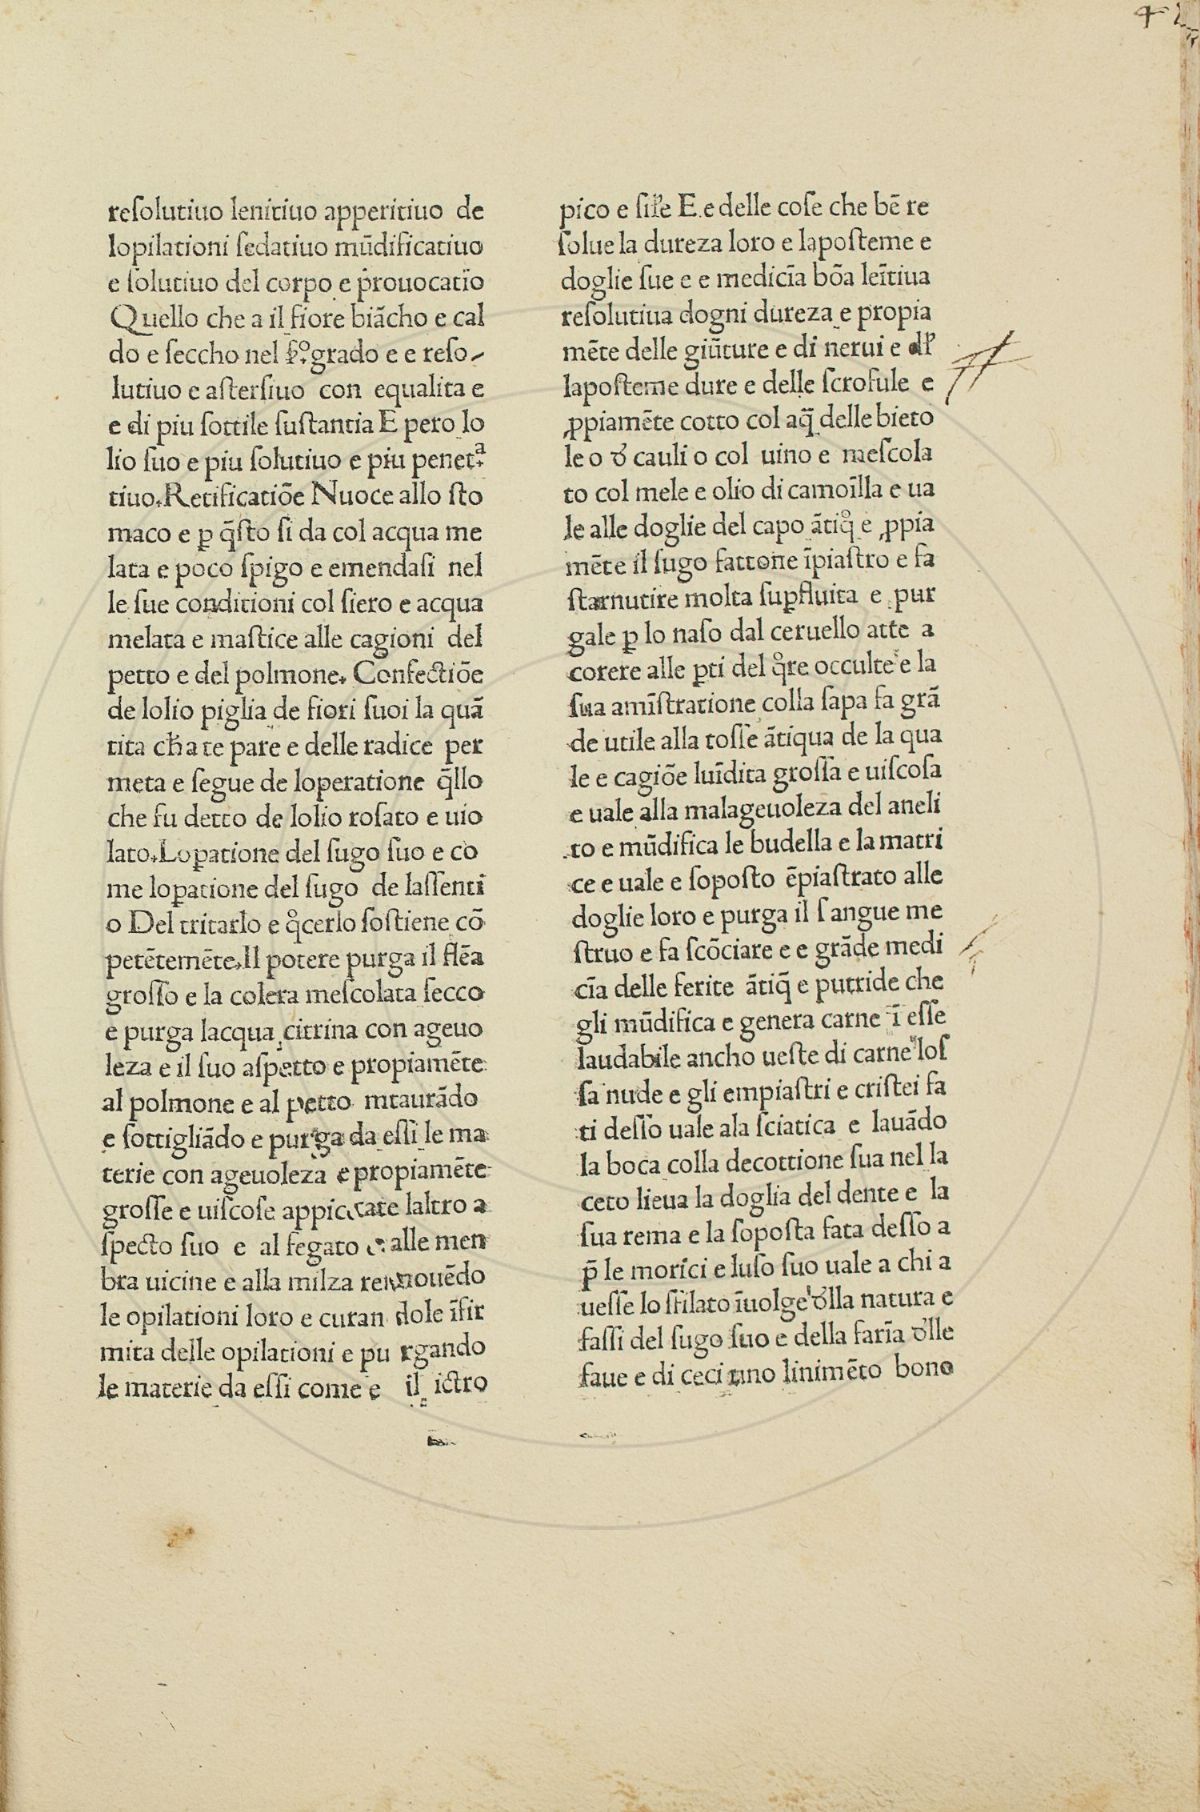 42
reſolutiuo lenitiuo apperitiuo de
lopilationi ſedatiuo mūdificatiuo
e ſolutiuo del corpo e ꝓuocatio
Quello che a il fiore biācho e cal
do e ſeccho nel grado e e reſo-
lutiuo e aſterſiuo con equalita e
e di piu ſottile ſuſtantia E pero lo
lio ſuo e piu ſolutiuo e piu penetᵃ
tiuo. Retificatiōe Nuoce allo ſto
maco e ꝑ q̄ſto ſi da col acqua me
lata e poco ſpigo e emendaſi nel
le ſue conditioni col ſiero e acqua
melata e maſtice alle cagioni del
petto e del polmone. Confectiōe
de lolio piglia de fiori ſuoi la quā
tita cħ a te pare e delle radice per
meta e ſegue de loperatione q̄llo
che fu detto de lolio roſato e uio
lato. Loꝑatione del ſugo ſuo e co
me loꝑatione del ſugo de laſſenti
o Del tritarlo e q̊cerlo ſoſtiene cō
petētemēte. Il potere purga il flēa
groſſo e la colera meſcolata ſecco
e purga lacqua citrina con ageuo
leza e il ſuo aſpetto e propiamēte
al polmone e al petto mtaurādo
e ſottigliādo e purga da eſſi le ma
terie con ageuoleza e propiamēte
groſſe e uiſcoſe appiccate laltro a
ſpecto ſuo e al fegato e alle men
bra uicine e alla milza remouēdo
le opilationi loro e curan dole īfir
mita delle opilationi e pu rgando
le materie da eſſi come e il ictro
pico e ſiłe E. e delle coſe che bē re
ſolue la dureza loro e lapoſteme e
doglie ſue e e medicīa bōa leītiua
reſolutiua dogni dureza e propia
mēte delle giūture e di nerui e dł
lapoſteme dure e delle ſcrofule e
ꝓpiamēte cotto col aq̄ delle bieto
le o đ cauli o col uino e meſcola
to col mele e olio di camoīlla e ua
le alle doglie del capo ātiq̊ e ꝓpia
mēte il ſugo fattone īpiaſtro e fa
ſtarnutire molta ſuꝑfluita e pur
gale ꝑ lo naſo dal ceruello atte a
corere alle ꝑti del q̊re occulte e la
ſua amīſtratione colla ſapa fa grā
de utile alla toſſe ātiqua de la qua
le e cagiōe luīdita groſſa e uiſcoſa
e uale alla malageuoleza del aneli
to e mūdifica le budella e la matri
ce e uale e ſopoſto ēpiaſtrato alle
doglie loro e purga il ſangue me
ſtruo e fa ſcōciare e e grāde medi
cīa delle ferite ātiq̄ e putride che
gli mūdifica e genera carne ī eſſe
laudabile ancho ueſte di carne loſ
ſa nude e gli empiaſtri e criſtei fa
ti deſſo uale ala ſciatica e lauādo
la boca colla decottione ſua nel la
ceto lieua la doglia del dente e la
ſua rema e la ſopoſta fata deſſo a
p̄ le morici e luſo ſuo uale a chi a
ueſſe lo ſtilato īuolge đlla natura e
faſſi del ſugo ſuo e della farīa đlle
faue e di ceci uno linimēto bono